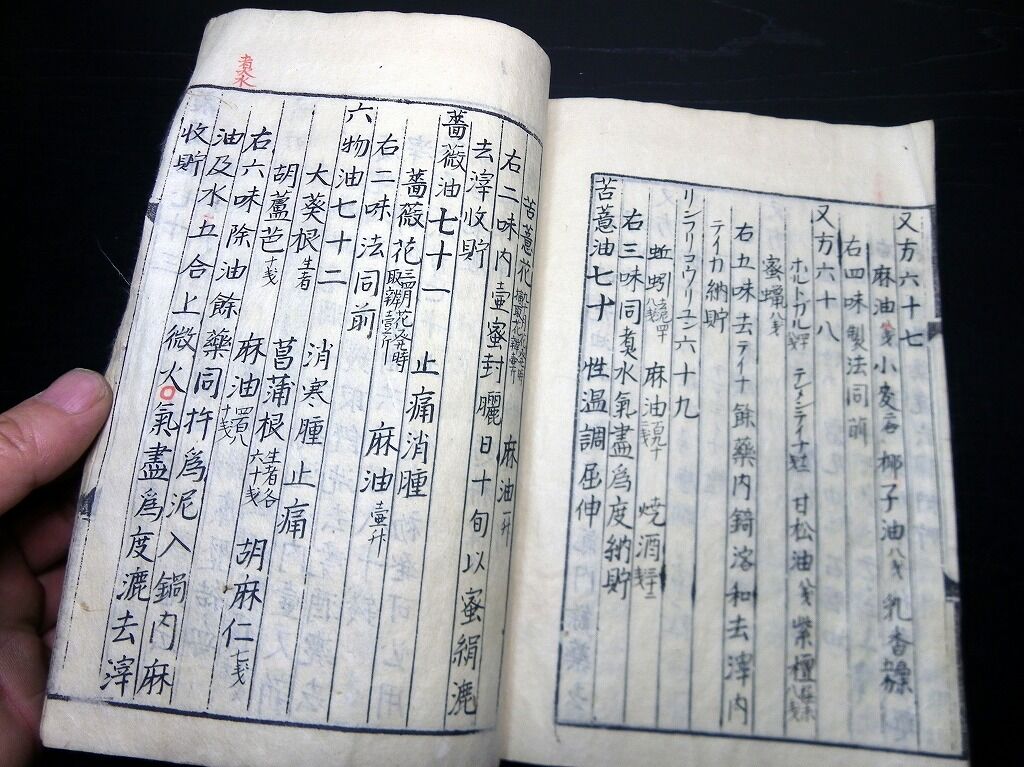 又方六十七
麻油 小麦 椰子油八戔 乳香
右四味製法同前
又方六十八
ホルトカル テレメンテイナ 甘松油八戔 紫檀
蜜蠟八戔
右五味去テイナ餘藥内錡溶和去滓内
テイカ納貯
リンフリコウリユン六十九
蚯蚓 麻油百九十二戔 焼酒
右三味同煮水氣盡爲度納貯
苦薏油七十 性温調屈伸
苦薏花 麻油一升
右二味内壷蜜封曬日十旬以蜜絹漉
去滓收貯
薔薇油七十一 止痛消腫
薔薇花三四月花発時取辨壹斤 麻油壹升
右二味法同前
六物油七十二 消寒腫止痛
大葵根生者 菖蒲根生者各六十戔 胡麻仁七戔
胡蘆芭十戔 麻油四百八十戔
右六味除油餘藥同杵爲泥入鍋内麻
油及水五合上微火氣盡爲度漉去滓
收貯
煮水